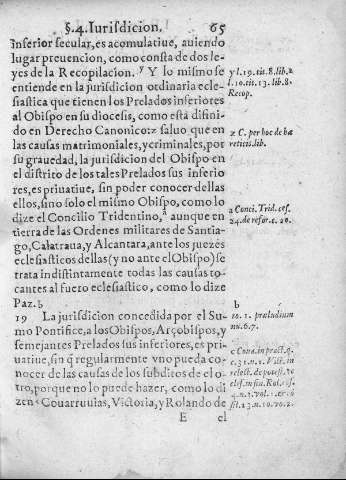 §.4. Iurisdicion. 65
Inferior secular, es acomulatiue, auiendo
lugar preuencion, como consta de dos le-
yes de la Recopilacion. y Y lo mismo se
entiende en la jurisdicion ordinaria ecle-
siastica que tienen los Prelados inferiores
al Obispo en su diocesis, como està difini-
do en Derecho Canonico: z saluo que en
las causas matrimoniales, y criminales, por
su grauedad, la jurisdicion del Obispo en
el distrito de los tales Prelados sus inferio
res, es priuatiue, sin poder conocer dellas
ellos, sino solo el mismo Obispo, como lo
dize el Concilio Tridentino, a aunque en
tierra de las Ordenes militares de Santia-
go, Calatraua, y Alcantara, ante los juezes
eclesiasticos dellas (y no ante el Obispo) se
trata indistintamente todas las causas to-
cantes al fuero eclesiastico, como lo dize
Paz. b
19 La jurisdicion concedida por el Su-
mo Pontifice, a los Obispos, Arçobispos, y
semejantes Prelados sus inferiores, es pri-
uatiue, sin q̃ regularmente vno pueda co-
nocer de las causas de los subditos de el o-
tro, porque no lo puede hazer, como lo di
zen c Couarruuias, Victoria, y Rolando de
E el
y l. 19. tit. 8. lib. 2
l. 10. tit. 13. lib. 8.
Recop.
z C. per hoc de hæ
reticis. lib.
a Conci. Trid. ses.
24. de refor. c. 20.
b
10. 1. præludium
nu. 6. 7.
c Coua. in pract. q.
c. 31. n. 1. Vict. in